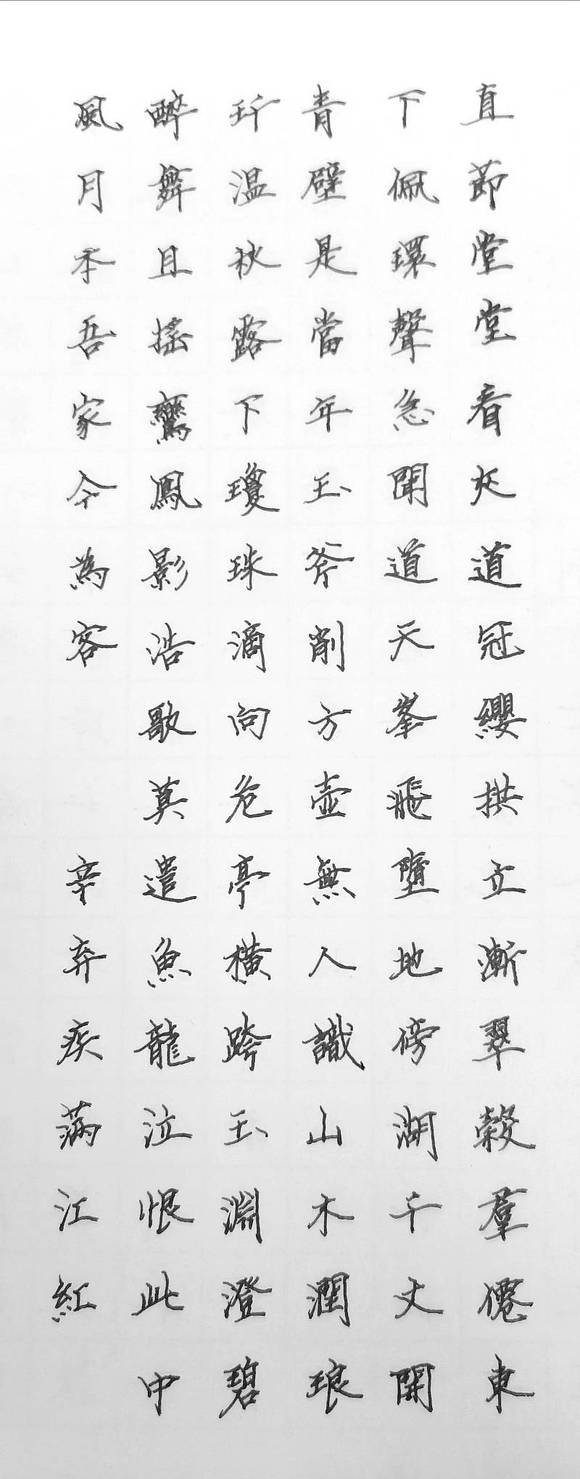 直節堂堂看夾道冠纓拱立漸翠縠羣僊東
下佩環聲急聞道天峯飛墮地傍湖千丈開
青壁是當年玉斧削方壺無人識山木潤琅
玕溫秋露下瓊珠滴向危亭橫跨玉淵澄碧
醉舞且搖鸞鳳影浩歌莫遣魚龍泣恨此中
風月本吾家今為客
辛弃疾滿江紅